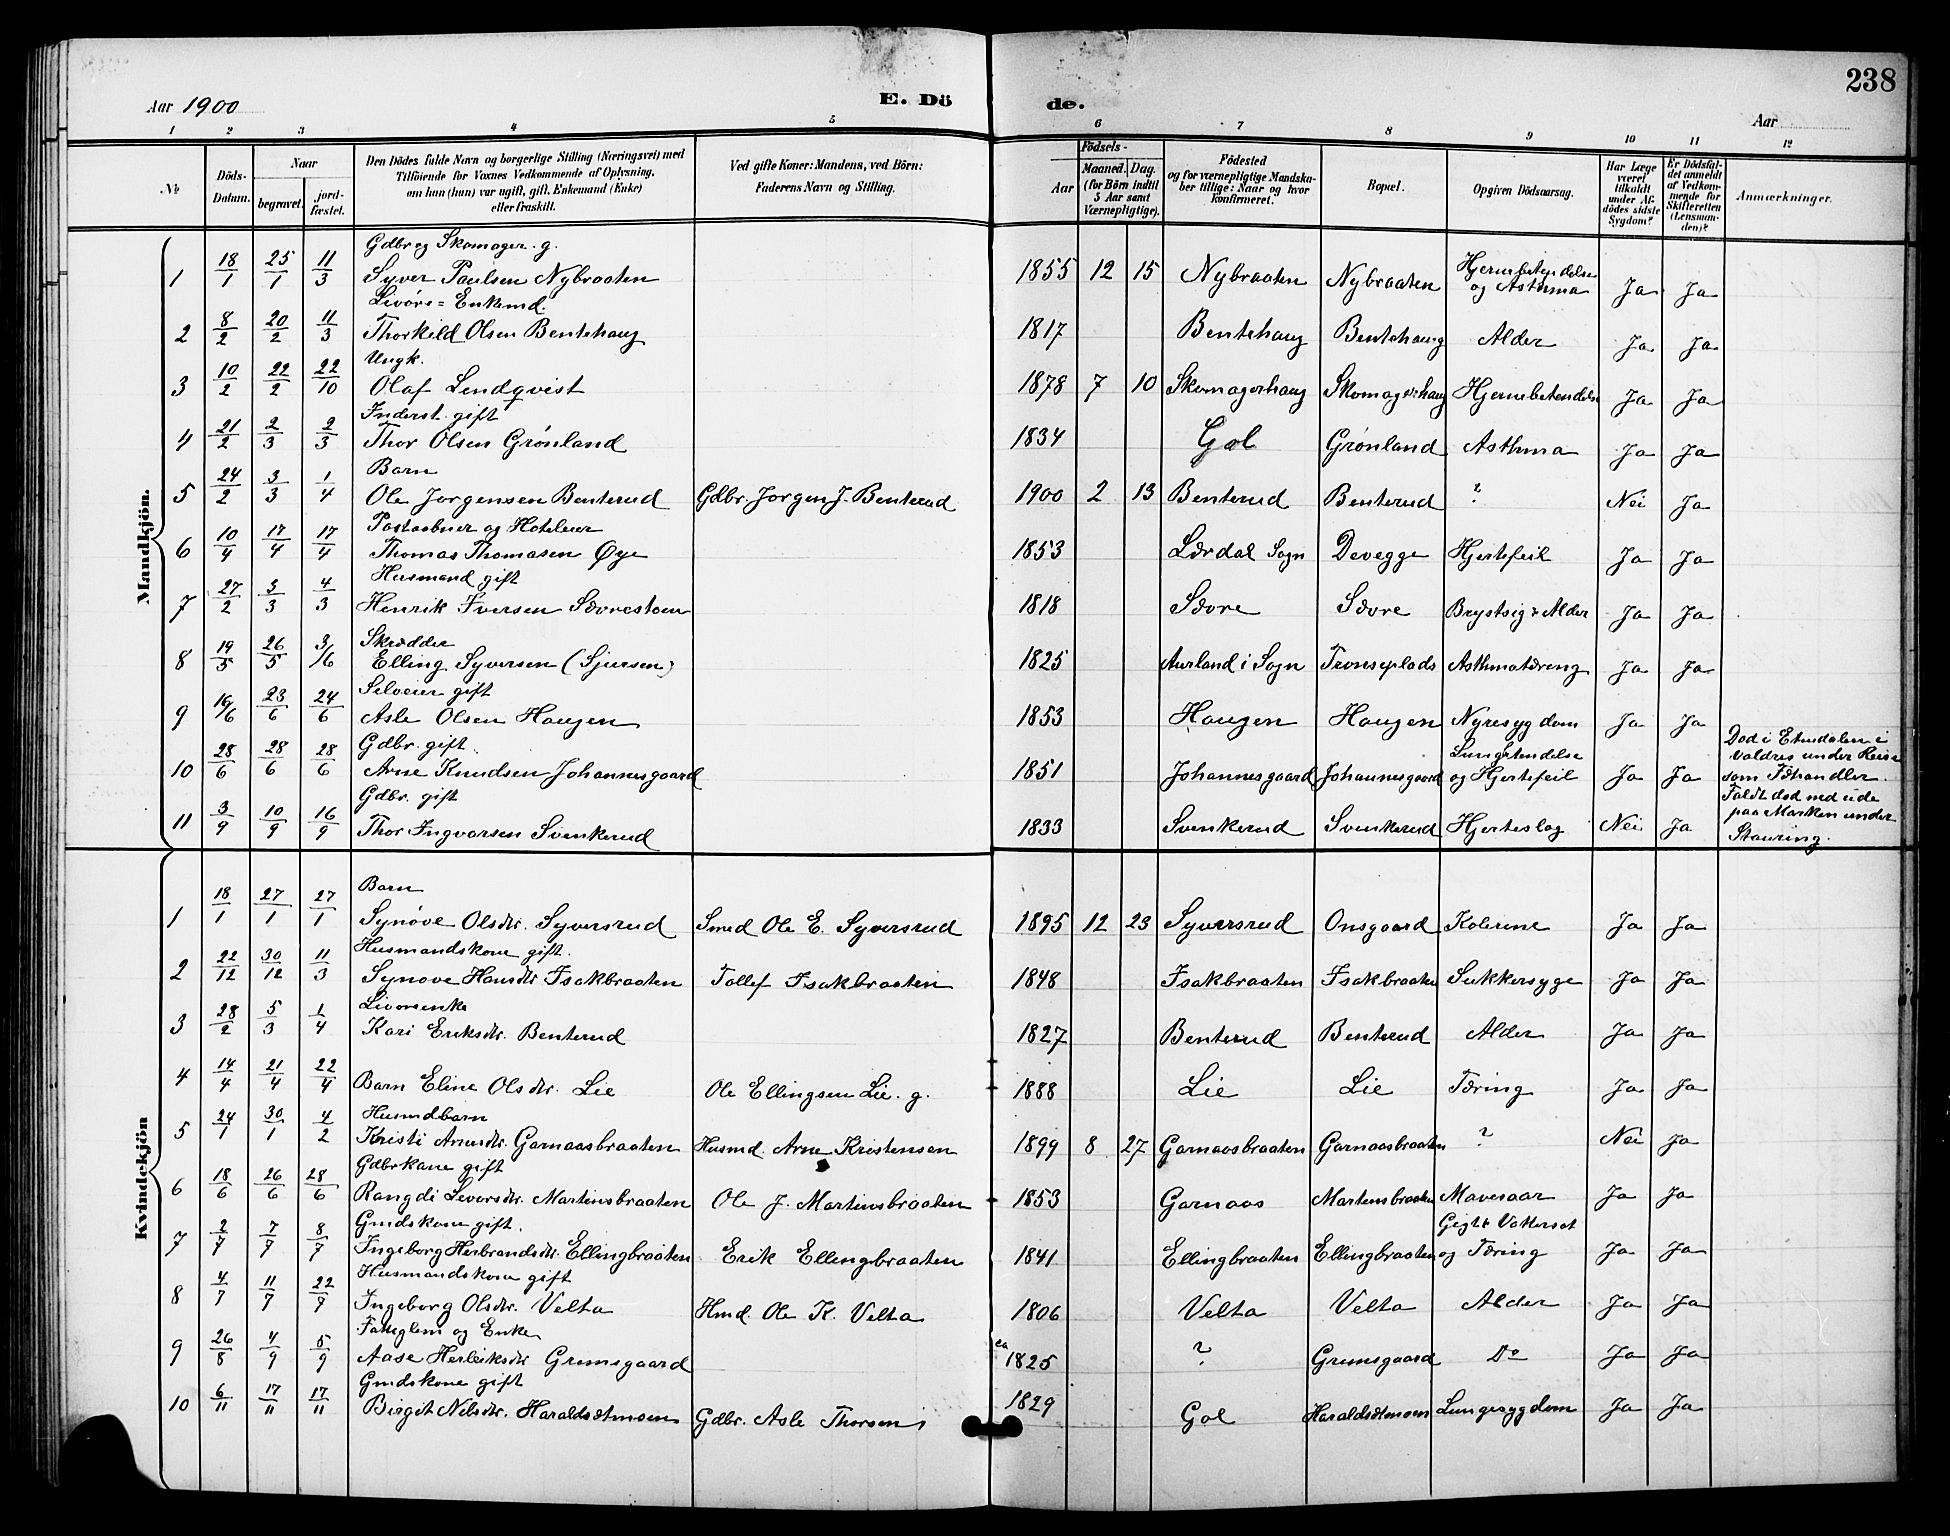 238
Aar 1900
E. Dö de.
Aar
1 2 3 4 5 6 7 8 9 10 11 12
№
Döds-Datum.
Naar
begravet.
jord-fæstet.
Den Dödes fulde Navn og borgerlige Stilling (Næringsvei) med
Tilföiende for Voxnes Vedkommende af Oplysning,
om han (hun) var ugift, gift, Enkemand (Enke)
eller fraskilt.
Ved gifte Koner: Mandens, ved Börn:
Faderens Navn og Stilling.
Födsels-
Aar
Maaned. Dag.
(for Börn indtil
5 Aar samt
Værnepligtige).
Födested
og for værnepligtige Mandska-
ber tillige: Naar og hvor
konfirmeret.
Bopæl.
Opgiven Dödsaarsag.
Har Læge
været
tilkaldt
under Af-
dödes sidste
Sygdom?
Er Dödsfal-
det anmeldt
af Vedkom-
mende for
Skifteretten
(Lensman-
den)?
Anmærkninger.
Mandkjön.
Gdbr og Skomager. g.
1 18/1 25/1 11/3 Syver Paulsen Nybraaten 1855 12 15 Nybraaten Nybraaten Hjernebetændelse og Asthma Ja Ja
Livøre = Enkemd.
2 8/2 20/2 11/3 Thorkild Olsen Bentehaug 1817 Bentehaug Bentehaug Alder Ja Ja
Ungk.
3 10/2 22/2 22/10 Olaf Lindqvist 1878 7 10 Skomagerhaug Skomagerhaug Hjernebetendelse Ja Ja
Inderst. gift
4 21/2 2/3 2/3 Thor Olsen Grönland 1834 Gol Grönland Asthma Ja Ja
Barn
5 24/2 3/3 1/4 Ole Jorgensen Benterud Gdbr. Jorgen J. Benterud 1900 2 13 Benterud Benterud ? Nei Ja
Postaabner og Hoteleier
6 10/4 17/4 17/4 Thomas Thomasen Øye 1853 Lærdal Sogn Devegge Hjertefeil Ja Ja
Husmand gift
7 27/2 3/3 4/3 Henrik Iversen Sævrestoen 1818 Sævre Sævre Brystsyg & Alder Ja Ja
Skrædder
8 19/5 26/5 3/6 Elling Syversen (Sjursen) 1825 Aurland i Sogn Asthmatæring Ja Ja
Selveier gift
9 16/6 23/6 24/6 Asle Olsen Haugen 1853 Haugen Haugen Nyresygdom Ja Ja
Gdbr. gift
10 28/6 28/6 28/6 Arne Knudsen Johannesgaard 1851 Johannesgaard Johannesgaard Lungbetendelse og Hjertefeil Ja Ja
Død i Etnedalen i
Valdres under Reise
som Fæhandler.
Gdbr. gift
11 3/9 10/9 16/9 Thor Ingvarsen Svenkerud 1833 Svenkerud Svenkerud Hjerteslag Nei Ja
Faldt død ned ude
paa Marken under
Stauring.
Kvindekjön
Barn
1 18/1 27/1 27/1 Synöve Olsdtr. Syversrud Smed Ole E. Syversrud 1895 12 23 Syversrud Onsgaard Kolerine Ja Ja
Husmandskone gift.
2 22/12 30/12 11/3 Synove Hansdtr Isakbraaten Tollef Isakbraaten 1848 Isakbraaten Isakbraaten Sukkersyge Ja Ja
Livoreenke
3 28/2 5/3 1/4 Kari Eriksdtr. Benterud 1827 Benterud Benterud Alder Ja Ja
4 14/4 21/4 22/4 Barn Eline Olsdtr. Lie Ole Ellingsen Lie. g. 1888 Lie Lie Tæring Ja Ja
Husmdbarn
5 24/1 30/1 4/2 Kristi Arnesdtr. Garnaasbraaten Husmd. Arne Kristensen 1899 8 27 Garnaasbraaten Garnaasbraaten ? Nei Ja
Gdbrkone gift
6 18/6 26/6 28/6 Rangdi Siversdtr. Martinsbraaten Ole J. Martinsbraaten 1853 Garnaas Martensbraaten Mavesaar Ja Ja
Gmdskone gift.
7 2/7 7/7 8/7 Ingeborg Herbrandsdtr. Ellingbraaten Erik Ellingsbraaten 1841 Ellingbraaten Ellingbraaten Gigt & Vattersot og Tæring Ja Ja
Husmandskone gift
8 4/7 11/7 22/9 Ingeborg Olsdtr. Velta Hmd. Ole K. Velta 1806 Velta Velta Alder Ja Ja
Fatiglem og Enke
9 26/8 4/9 5/9 Aase Herleiksdtr Grimsgaard ca 1825 ? Grimsgaard Do Ja Ja
Gmdskone gift
10 6/11 17/11 17/11 Birgit Nilsdtr. Haraldsetmoen Gdbr. Asle Thorsen 1829 Gol Haraldsetmoen Lungesygdom Ja Ja